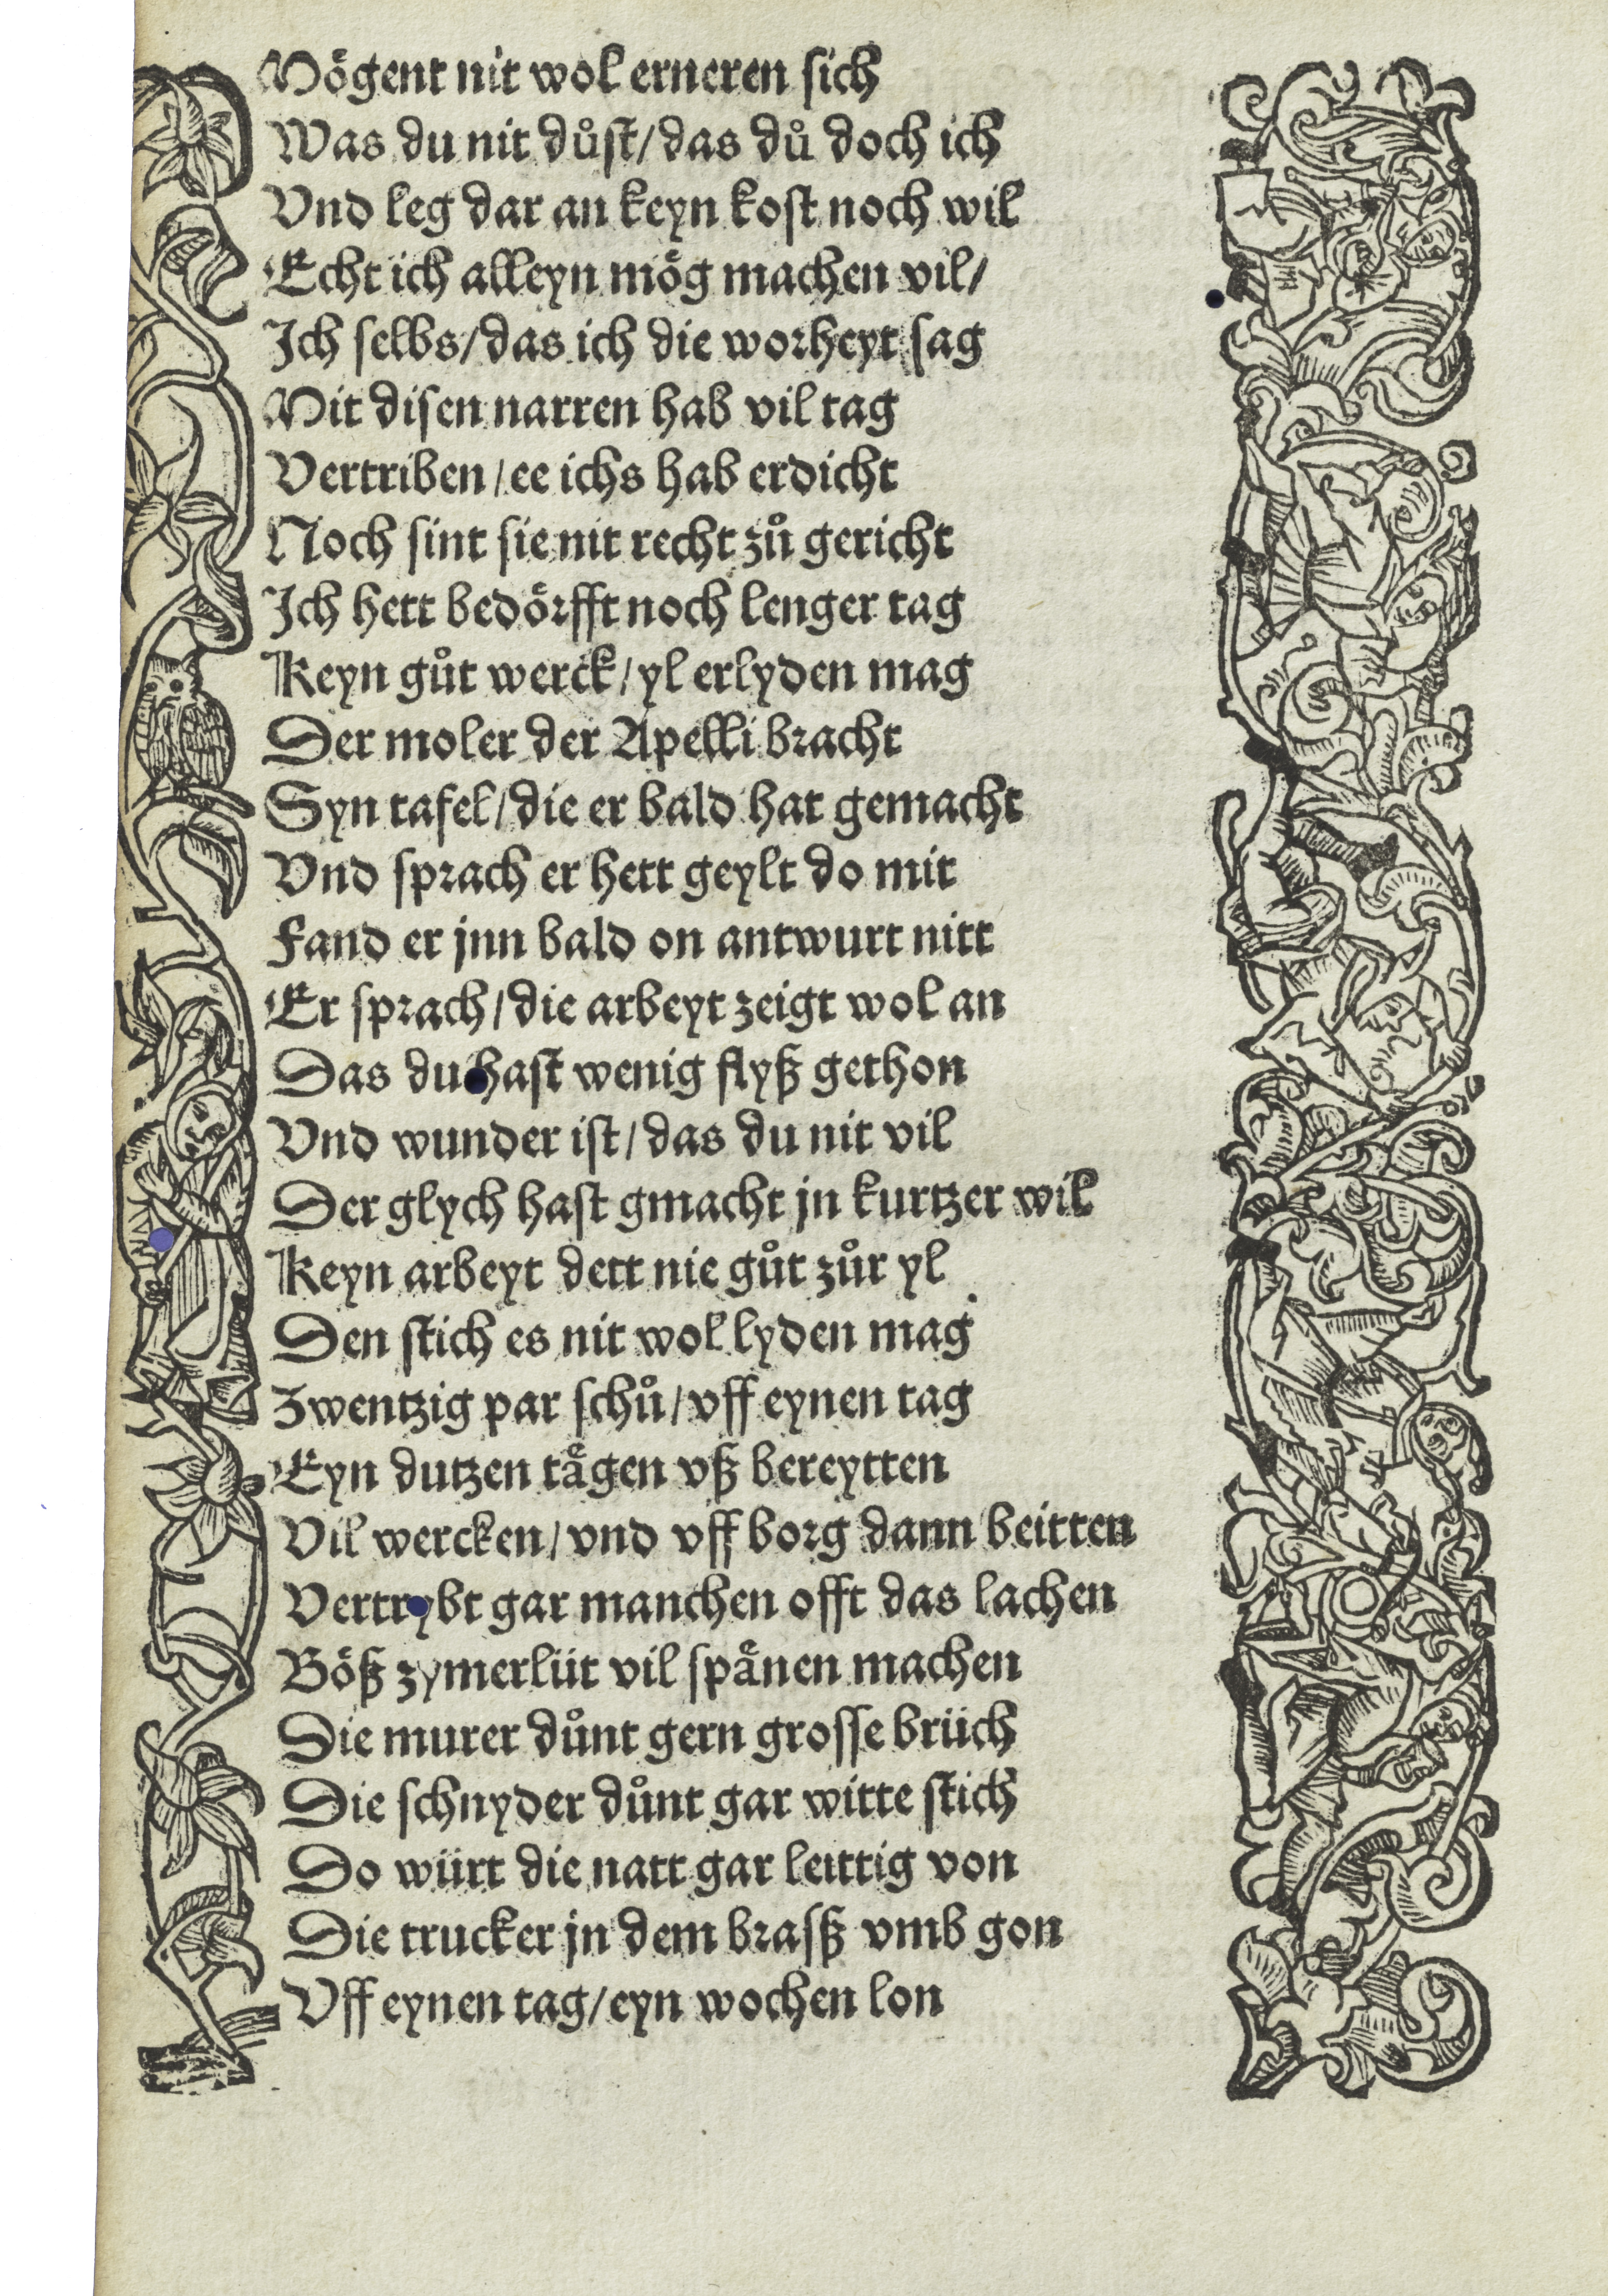 Mögent nit wol erneren sich
Was du nit důſt/das dů doch ich
Vnd leg dar an keyn koſt noch wil
Echt ich alleyn mög machen vil/
Ich ſelbs/das ich die worheyt ſag
Mit diſen narren hab vil tag
Vertriben/ee ichs hab erdicht
Noch ſint ſie nit recht zů gericht
Ich hett bedörfft noch lenger tag
Keyn gůt werck/yl erlyden mag
Der moler der Apelli bracht
Syn tafel/die er bald hat gemacht
Vnd ſprach er hett geylt do mit
Fand er jnn bald on antwurt nitt
Er ſprach/die arbeyt zeigt wol an
Das du haſt wenig flyß gethon
Vnd wunder iſt/das du nit vil
Der glych haſt gmacht jn kurtzer wil
Keyn arbeyt dett nie gůt zůr yl
Den ſtich es nit wol lyden mag
Zwentzig par ſchů/vff eynen tag
Eyn dutzen tågen vß bereytten
Vil wercken/vnd vff borg dann beitten
Vertrybt gar manchen offt das lachen
Böß zymerlüt vil ſpånen machen
Die murer důnt gern groſſe brüch
Die ſchnyder důnt gar witte ſtich
Do würt die natt gar leittig von
Die trucker jn dem braſß vmb gon
Vff eynen tag/eyn wochen lon